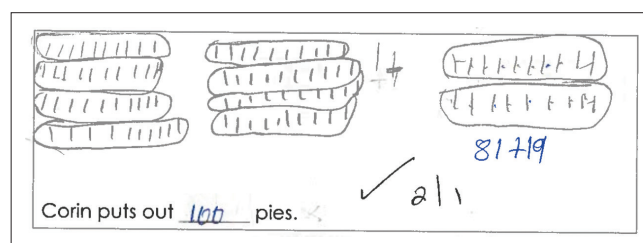 81719
2/1
Corin puts out 100 pies.